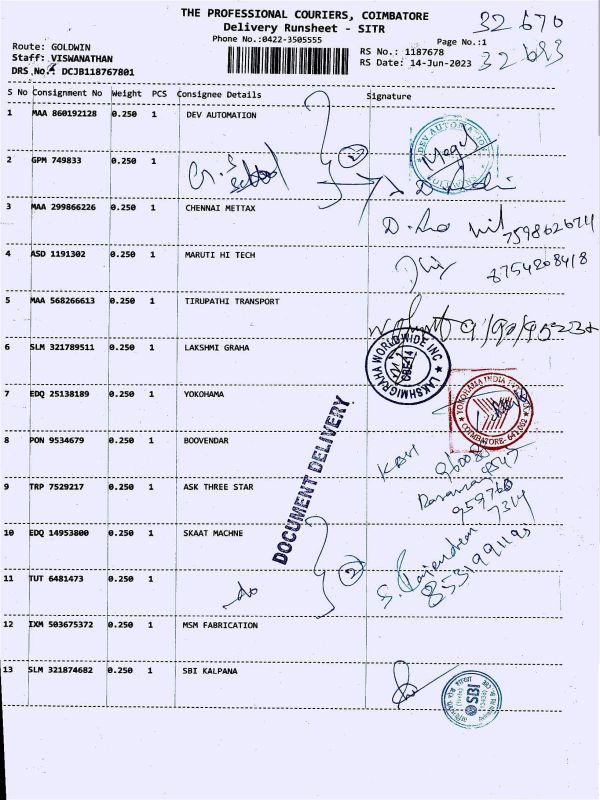 THE PROFESSIONAL COURIERS, COIMBATORE
32 670
Delivery Runsheet - SITR
Phone No.:0422-3505555
Page No.:1
Route: GOLDWIN
RS No.: 1187678
Staff: VISWANATHAN
RS Date: 14-Jun-2023
DRS No.: DCJB118767801
S No Consignment No Weight PCS Consignee Details Signature
1 MAA 860192128 0.250 1 DEV AUTOMATION
DEV AUTOMATION
2 GPM 749833 0.250 1
3 MAA 299866226 0.250 1 CHENNAI METTAX
7598626714
4 ASD 1191302 0.250 1 MARUTI HI TECH
8754208418
5 MAA 568266613 0.250 1 TIRUPATHI TRANSPORT
6 SLM 321789511 0.250 1 LAKSHMI GRAHA
LAKSHMIGRAHA WORLDWIDE INC
CBE-14
7 EDQ 25138189 0.250 1 YOKOHAMA
YOKOHAMA INDIA
COIMBATORE- 641 002
8 PON 9534679 0.250 1 BOOVENDAR
9 TRP 7529217 0.250 1 ASK THREE STAR
DOCUMENT DELIVERY
10 EDQ 14953800 0.250 1 SKAAT MACHNE
S. Rajendran
11 TUT 6481473 0.250 1
do
2
12 IXM 503675372 0.250 1 MSM FABRICATION
13 SLM 321874682 0.250 1 SBI KALPANA
SBI